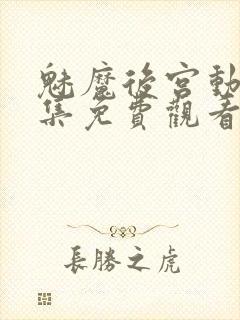 魅魔後宮動
集免費觀看
長勝之虎